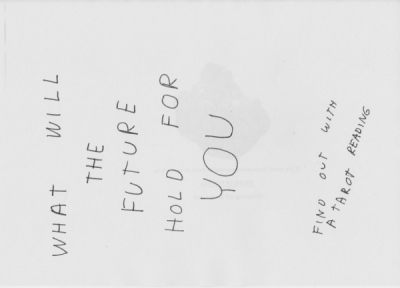 WHAT WILL
THE
FUTURE
HOLD FOR
YOU
FIND OUT WITH
A TAROT READING